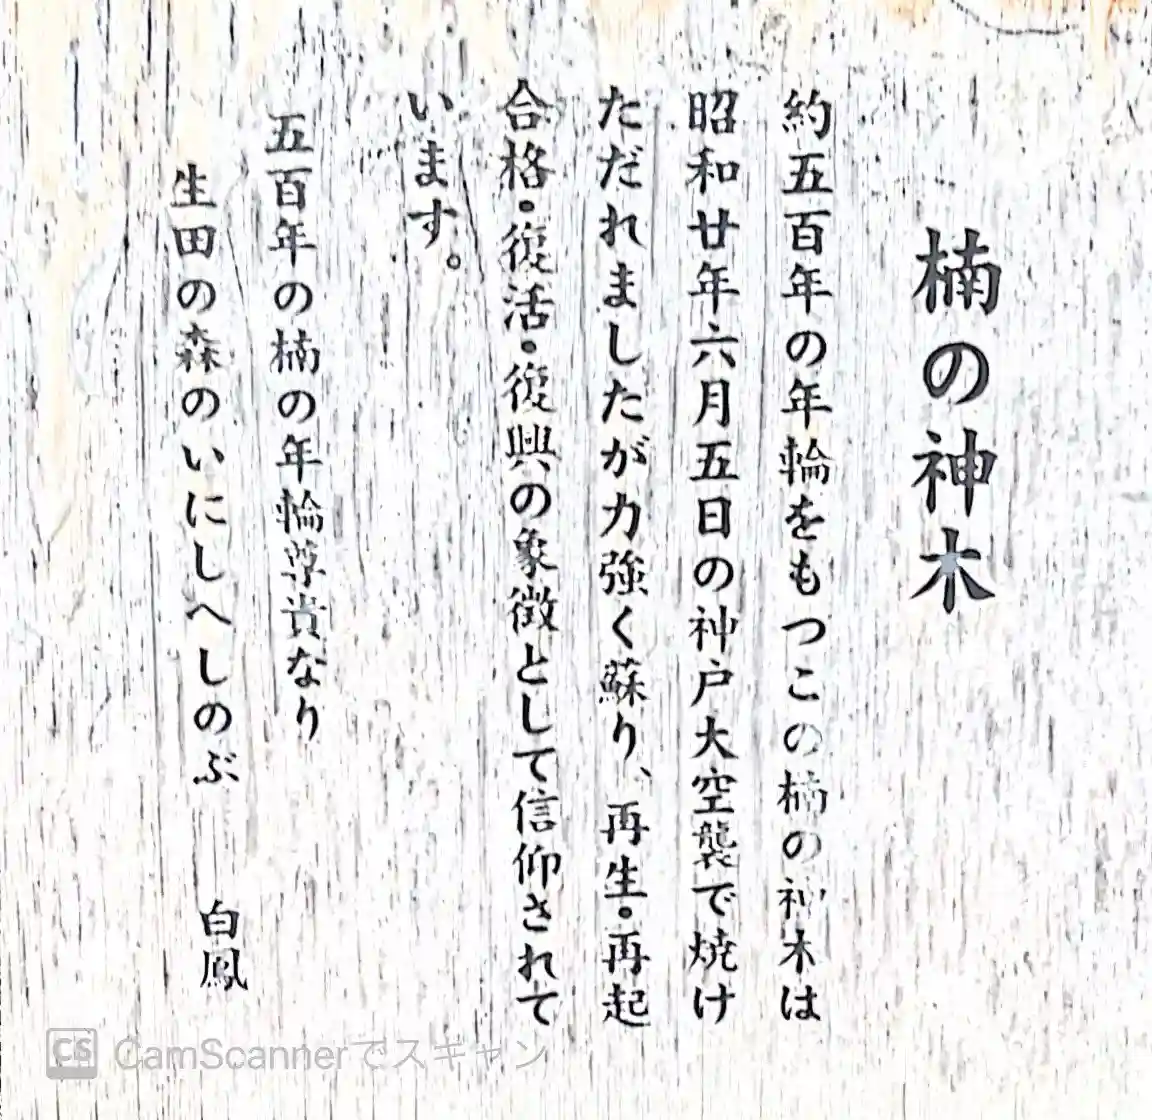 楠の神木
約五百年の年輪をもつこの楠の神木は
昭和廿年六月五日の神戸大空襲で焼け
ただれましたが力強く蘇り、再生・再起
合格・復活・復興の象徴として信仰されて
います。
五百年の楠の年輪尊貴なり
生田の森のいにしへしのぶ 白鳳
CS CamScannerでスキャン